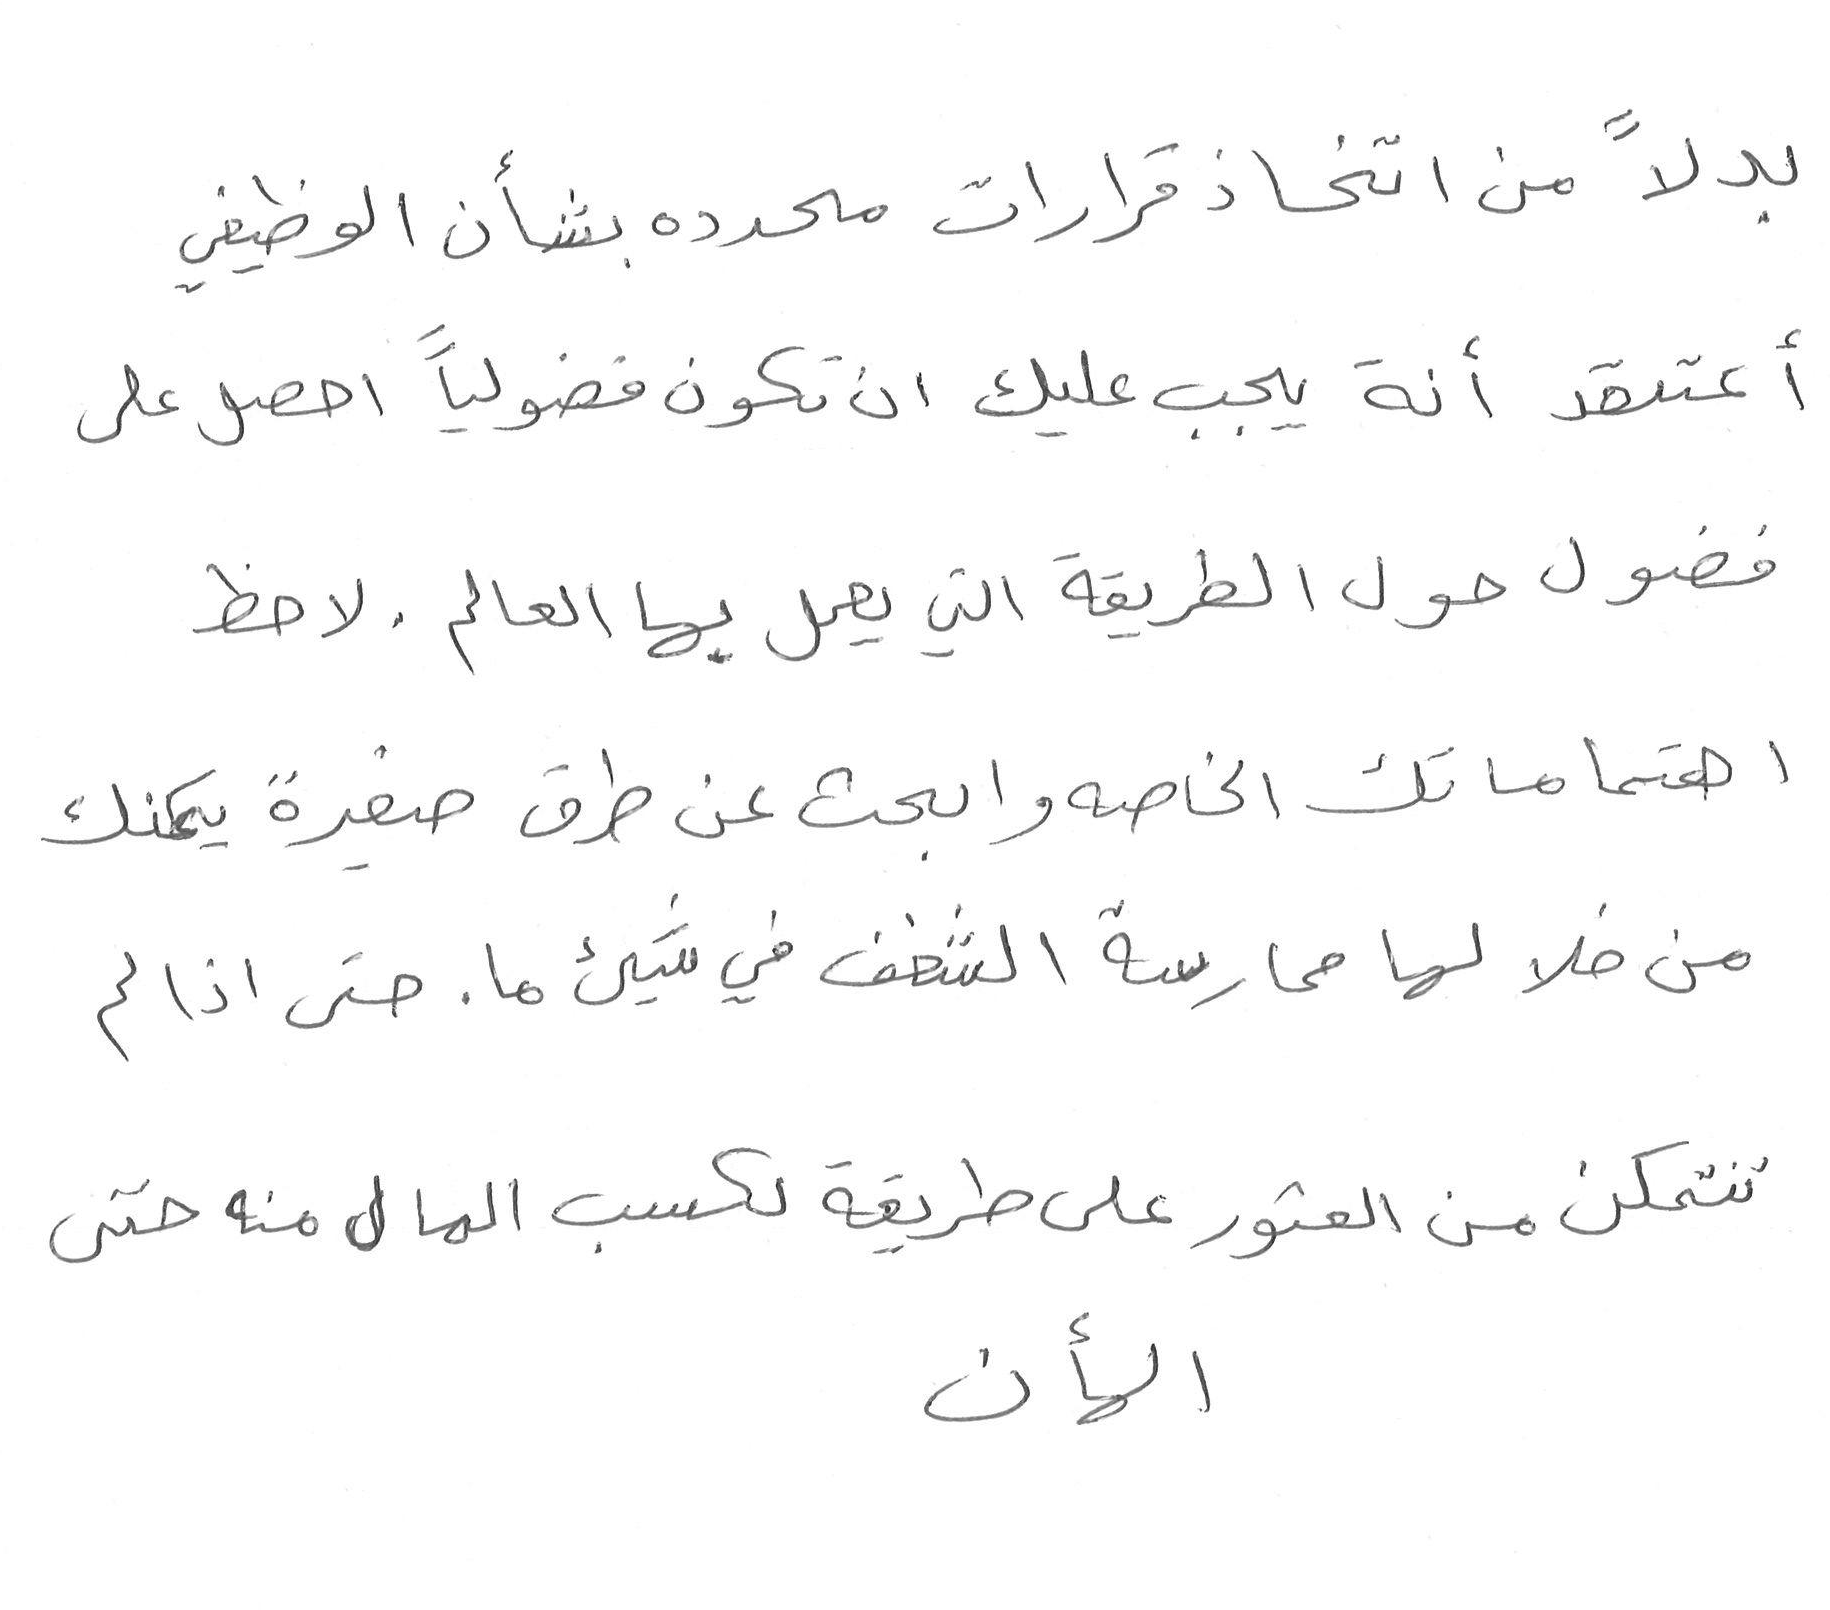 بدلاً من اتخاذ قرارات محدده بشأن الوظيفي
أعتقد أنة يجب عليك ان تكون فضولياً احصل على
فضول حول الطريقة التي يعمل بها العالم . لاحظ
اهتماماتك الخاصه وابحث عن طرق صغيرة يمكنك
من خلالها ممارسة الشغف في شيئ ما . حتى اذا لم
تتمكن من العثور على طريقة لكسب المال منه حتى
الأن